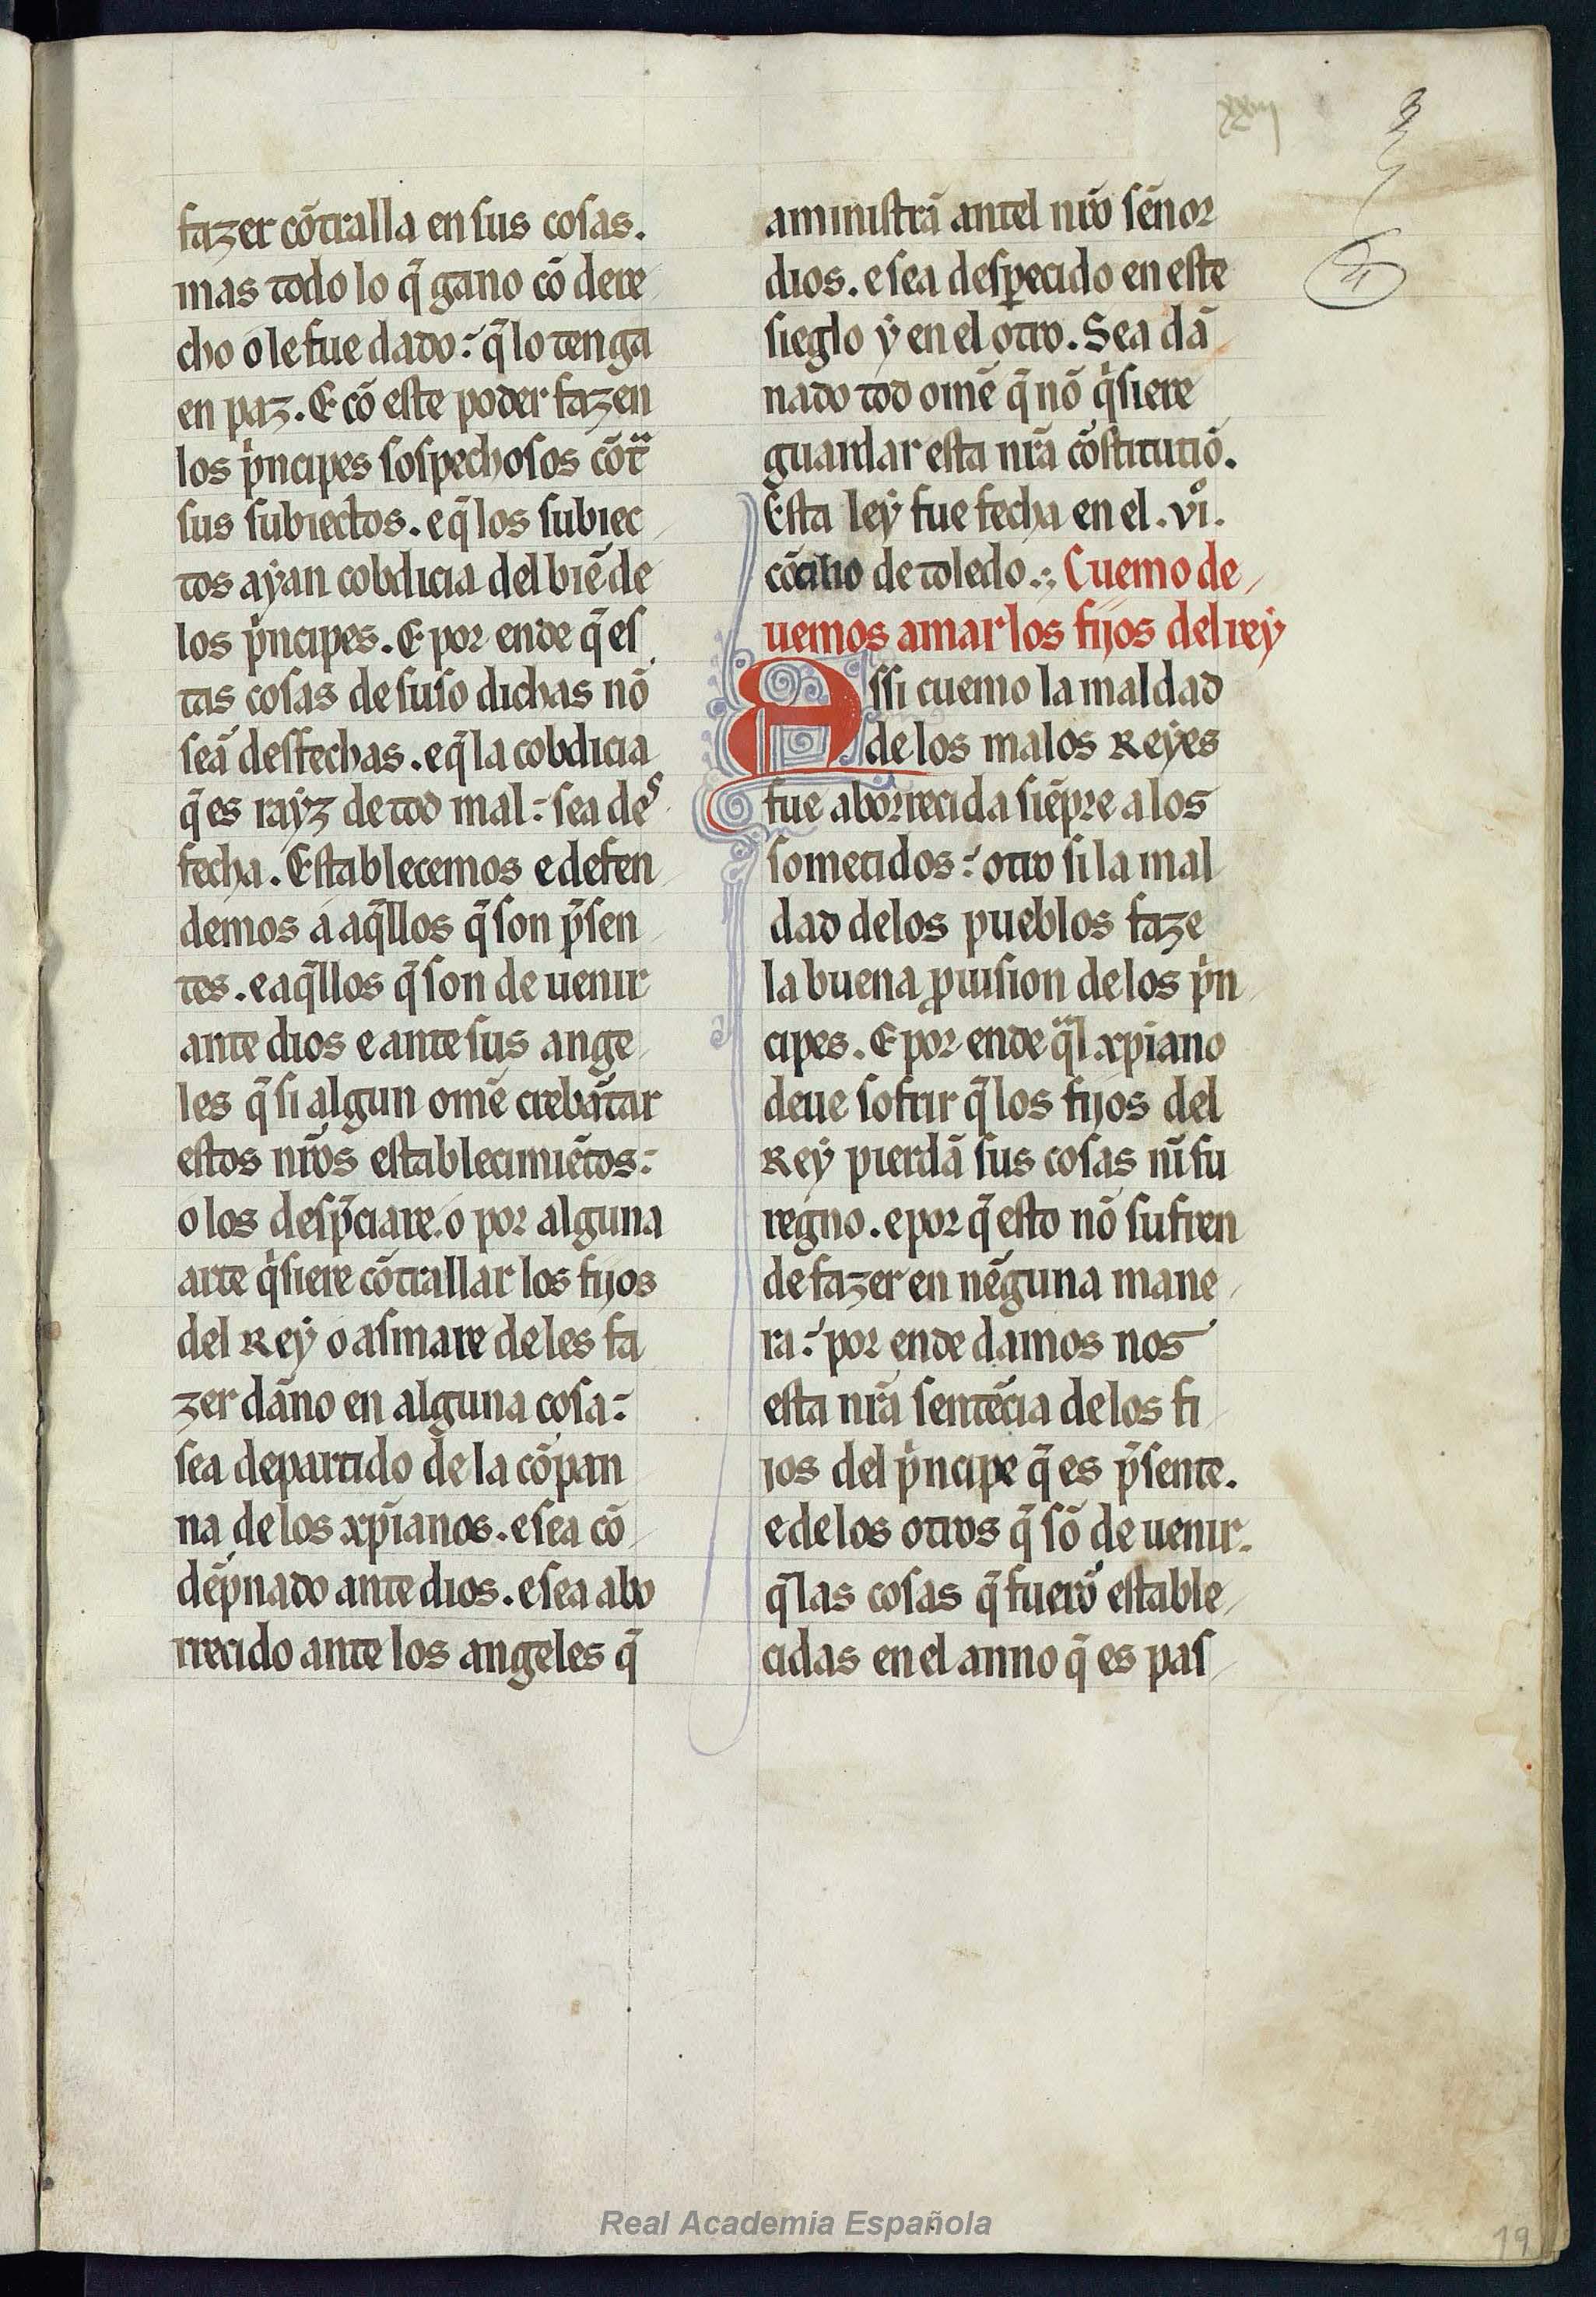 xxiij
fazer cõtralla en sus cosas.
mas todo lo q̃ gano cõ dere
cho o le fue dado: q̃ lo tenga
en paz. E cõ este poder fazen
los pͥncipes sospechosos cõtᷓ
sus subiectos. e q̃ los subiec
tos ayan cobdicia del biẽ de
los pͥncipes. E por ende q̃ es
tas cosas de suso dichas nõ
seã desfechas. e q̃ la cobdicia
q̃ es rayz de tod mal: sea des
fecha. Establecemos e defen
demos á aq̃llos q̃ son p̃sen
tes. e aq̃llos q̃ son de uenir
ante dios e ante sus ange
les q̃ si algun omẽ crebãtar
estos nr̃os establecimiẽtos:
o los desp̃ciare. o por alguna
arte qͥsiere cõtrallar los fijos
del Rey o asmare de les fa
zer dãno en alguna cosa:
sea departido de la cõpan
na de los xp̃ianos. e sea cõ
dẽpnado ante dios. e sea abo
rrecido ante los angeles q̃
aministrã antel nr̃o sẽnor
dios. e sea desꝑecido en este
sieglo ẏ en el otro. Sea dã
nado tod omẽ q̃ nõ qͥsiere
guardar esta nr̃a cõstitutiõ.
Esta leẏ fue fecha en el .viͦ.
cõcilio de toledo.:. Cuemo de
uemos amar los fijos del reẏ
Assi cuemo la maldad
de los malos Reẏes
fue aborrecida siẽpre a los
sometidos: otro si la mal
dad de los pueblos faze
la buena ꝓuision de los pͥn
cipes. E por ende qᷓl xp̃iano
deue sofrir q̃ los fijos del
Reẏ pierdã sus cosas nĩ su
regno. e por q̃ esto nõ sufren
de fazer en nẽguna mane
ra: por ende damos nos
esta nr̃a sentẽcia de los fi
ios del pͥncipe q̃ es p̃sente.
e de los otros q̃ sõ de uenir.
q̃ las cosas q̃ fuerõ estable
cidas en el anno q̃ es pas
Real Academia Española
19